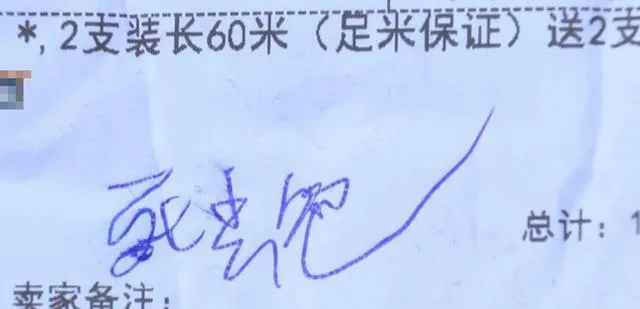 *,2支装长60米（足米保证）送2支
死去吧
总计：1
卖家备注：